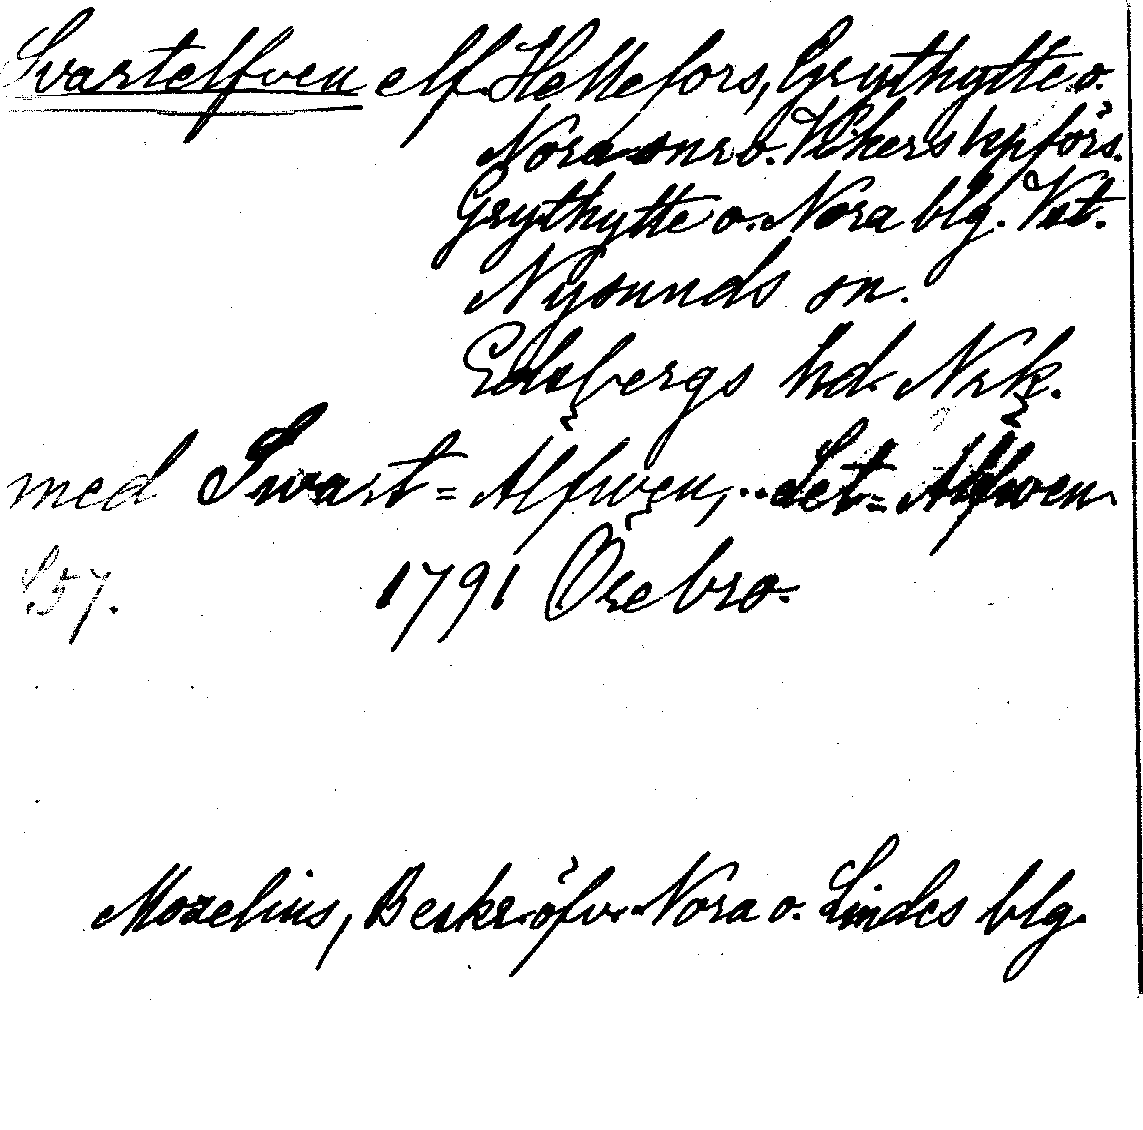 Svartelfven elf. Hellefors, Grythytte o.
Nora snr o. Vikers kpförs.
Grythytte o. Nora blg. Vst.
Nysunds sn.
Edsbergs hd. Nrk.
med Swart=Älfwen, .. Let=Älfwen
S57. 1791 Örebro.
Mozelius, Beskr. öfv. Nora o. Lindes blg.